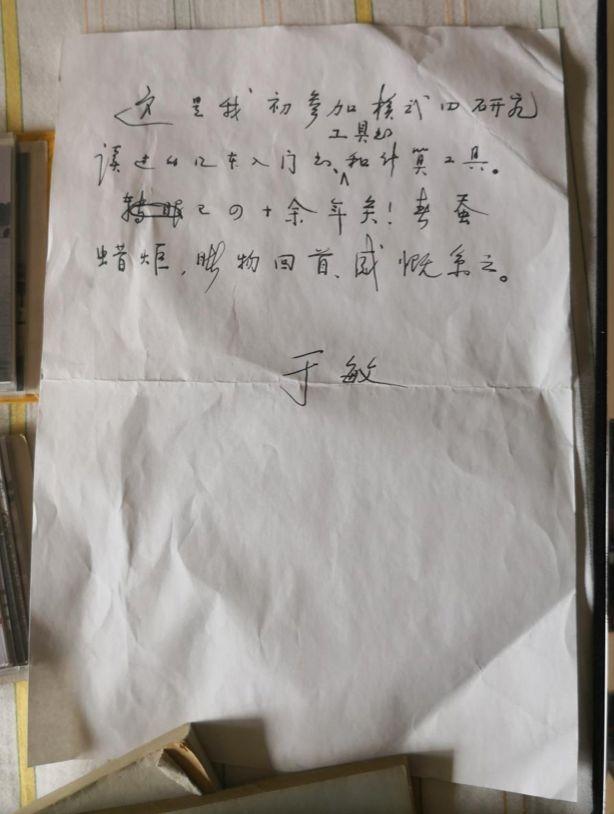 这是我初参加模式四研究
工具书
读过的几本入门书、和计算工具。
转眼已四十余年矣！春蚕
蜡炬，睹物回首，感慨系之。
于敏